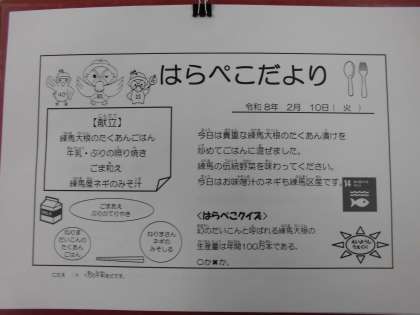 はらぺこだより
令和8年 2月 10日( 火 )
【献立】
練馬大根のたくあんごはん
牛乳・ぶりの照り焼き
ごま和え
練馬産ネギのみそ汁
今日は貴重な練馬大根のたくあん漬けを
炒めてごはんに混ぜました。
練馬の伝統野菜を味わってください。
今日はお味噌汁のネギも練馬区産です。
ごまあえ
ぶりのてりやき
ねりま
だいこんの
たくあん
ごはん
ねりまさん
ネギの
みそしる
<はらぺこクイズ>
幻のだいこんと呼ばれる練馬大根の
生産量は年間100万本である。
○か✖か。
14